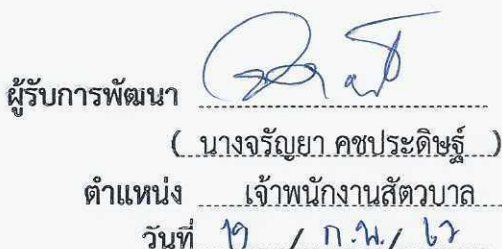 ผู้รับการพัฒนา
( นางจรัญยา คชประดิษฐ์ )
ตำแหน่ง เจ้าพนักงานสัตวบาล
วันที่ / ก.พ. / ๖๖